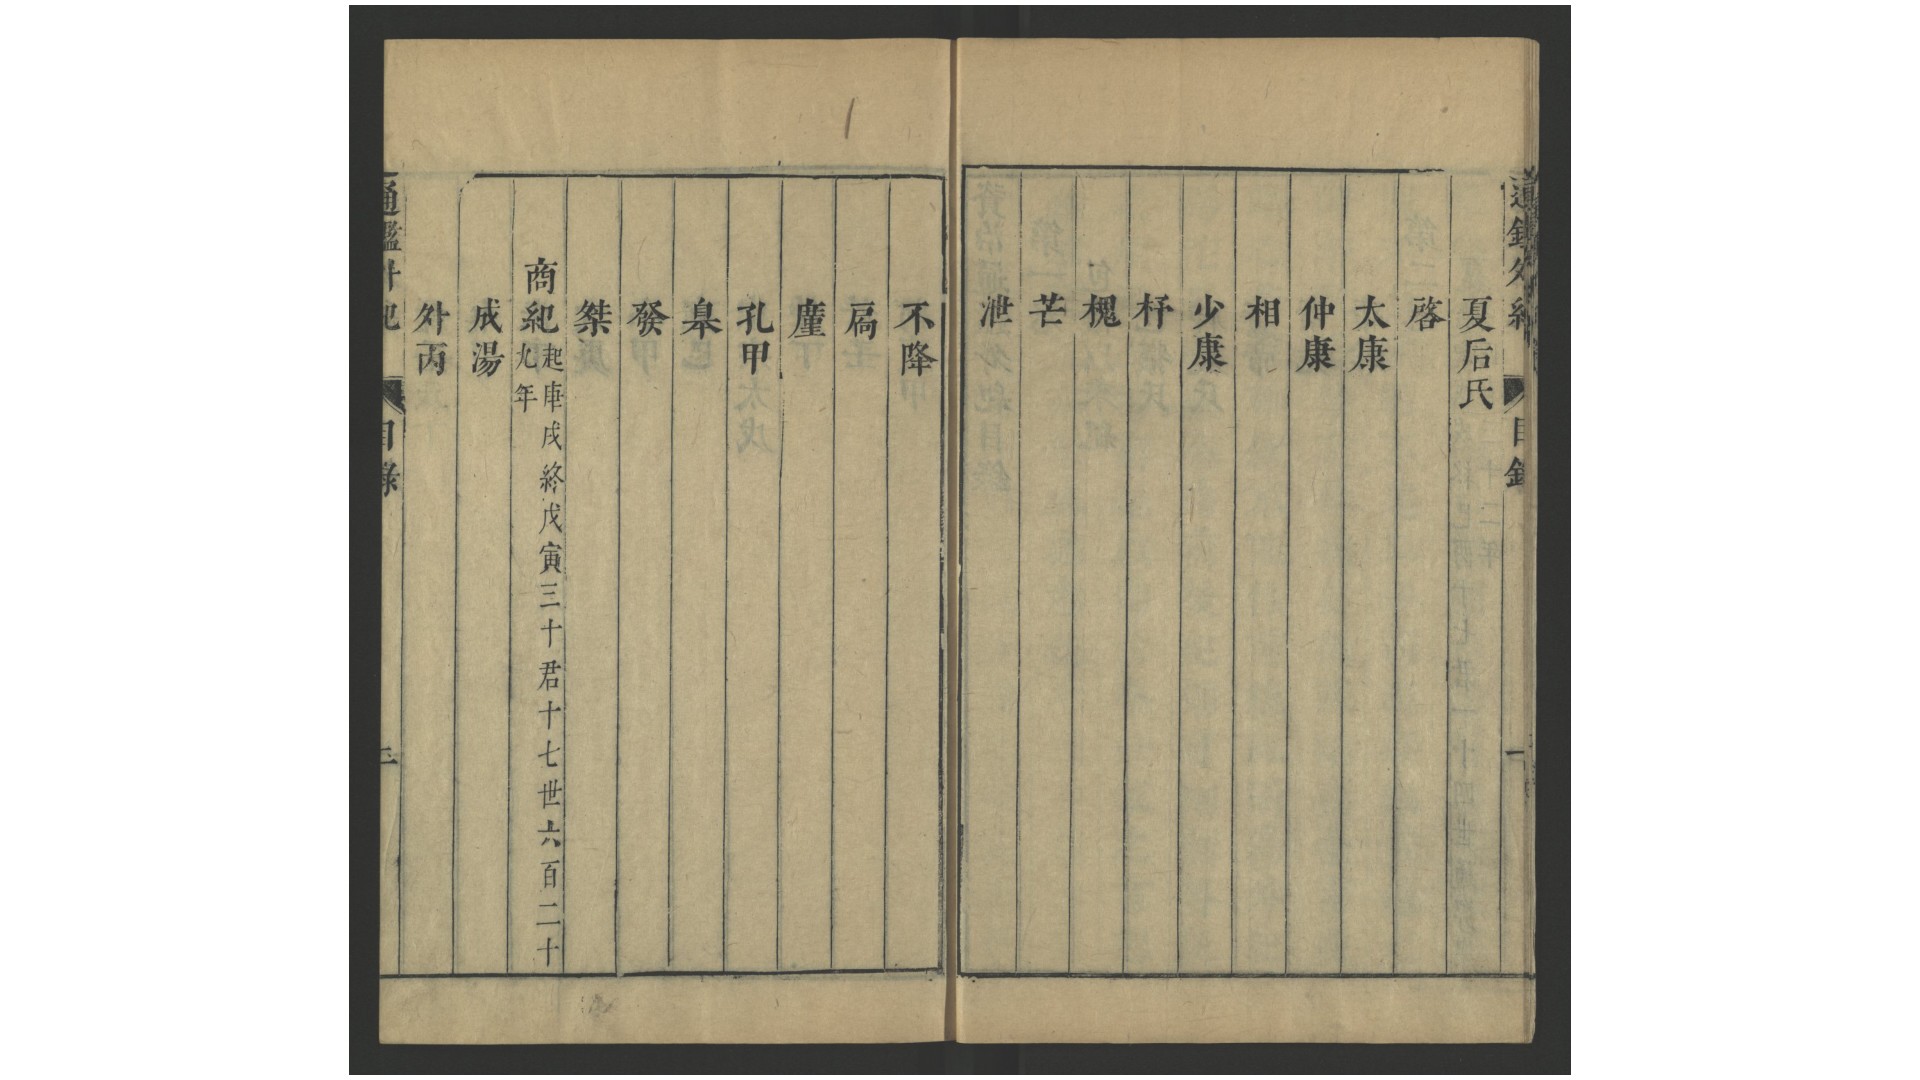 通鑑外紀 目錄 二
夏后氏
啓
太康
仲康
相
少康
杼
槐
芒
泄
不降
扃
廑
孔甲
皋
發
桀
商紀起庚戌終戊寅三十君十七世六百二十
九年
成湯
外丙
通鑑外紀 目錄